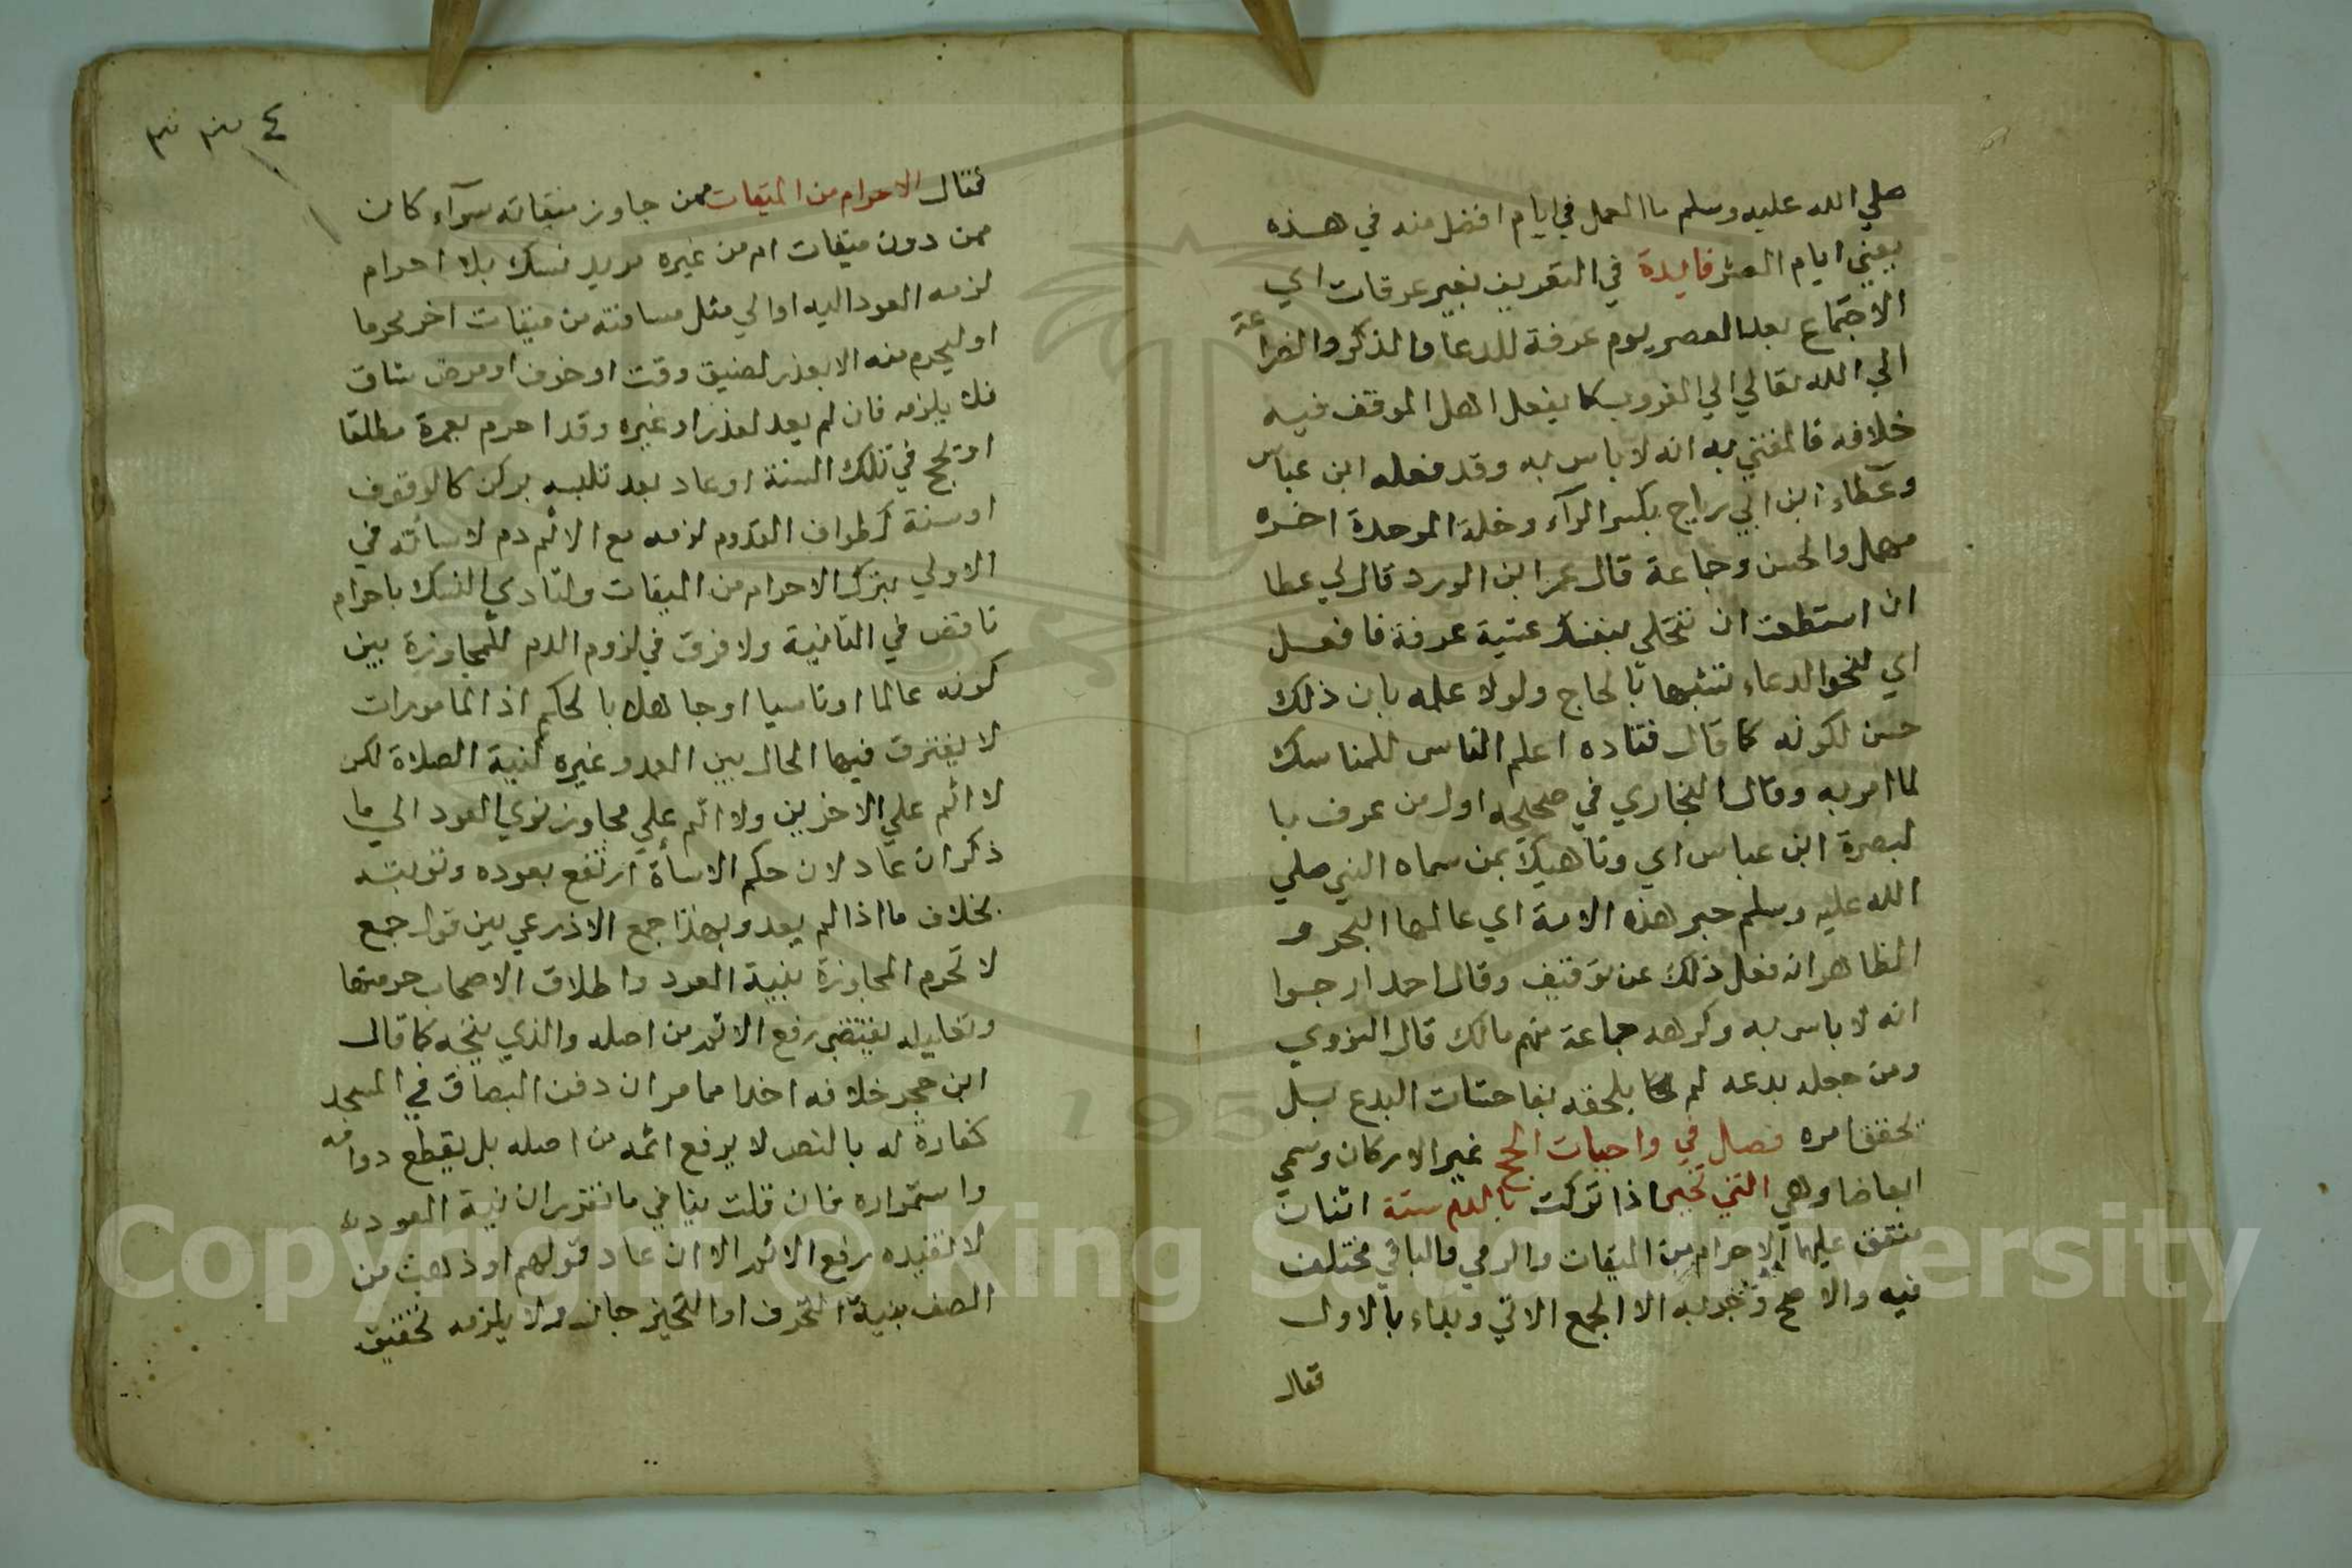 صلي الله عليه وسلم ما العمل في ايام افضل منه في هذه
يعني ايام العشر فايدة في التعريف بغير عرفات اي
الاجتماع بعد العصر يوم عرفة للدعا والذكر والضراعة
الي الله تعالي الي الغروب كما يفعل اهل الموقف فيه
خلافه فالمفتي به انه لا باس به وقد فعله ابن عباس
وعطاء ابن ابي رباح بكسر الرآء وخلة الموحدة اخره
مهمل والحسن وجماعة قال عمر ابن الورد قال لي عطا
ان استطعت ان تختلي بنفسك عشية عرفة فافعل
اي لنحو الدعاء تشبها بالحاج ولولا علمه بان ذلك
حسن لكونه كما قال قتاده اعلم الناس للمناسك
لما امر به وقال البخاري في صحيحه اول من عرف با
لبصرة ابن عباس اي وناهيك بمن سماه النبي صلي
الله عليه وسلم حبر هذه الامة اي عالمها البحر و
الظاهر انه فعل ذلك عن توقيف وقال احمد ارجوا
انه لا باس به وكرهه جماعة منهم مالك قال النووي
ومن جعله بدعه لم يلحقه بفاحشات البدع بل
يخفف امره فصل في واجبات الحج غير الاركان وسمي
ابعاضا وهي التي تجبر اذا تركت بالدم ستة اثنان
متفق عليهما الاحرام من الميقات والرمي والباقي مختلف
فيه والاصح وجوبه الا الجمع الاتي وبداء بالاول
فقال
٤
فقال الاحرام من الميقات فمن جاوز ميقاته سوآء كان
ممن دون ميقات ام من غيره مريد نسك بلا احرام
لزمه العود اليه او الي مثل مسافته من ميقات اخر محرما
او ليحرم منه الا بعذر لضيق وقت او خوف او مرض شاق
فلا يلزمه فان لم يعد لعذر او غيره وقد احرم بعمرة مطلقا
او بحج في تلك السنة او عاد بعد تلبسه بركن كالوقوف
او سنة كطواف القدوم لزمه مع الاثم دم لاساته في
الاولي بترك الاحرام من الميقات ولتادي النسك باحرام
ناقص في الثانية ولا فرق في لزوم الدم للمجاوزة بين
كونه عالما او ناسيا او جاهلا بالحكم اذ المامورات
لا يفترق فيها الحال بين العمد وغيره كنية الصلاة لكن
لا اثم علي الاخرين ولا اثم علي مجاوز نوي العود الي ما
ذكر ان عاد لان حكم الاساة ارتفع بعوده وتوبته
بخلاف ما اذا لم يعد وبهذا جمع الاذرعي بين قول جمع
لا تحرم المجاوزة بنية العود واطلاق الاصحاب حرمتها
وتعليله يقتضي رفع الاثم من اصله والذي يتجه كما قال
ابن حجر خلافه اخذا مما مر ان دفن البصاق في المسجد
كفارة له بالنص لا يرفع اثمه من اصله بل يقطع دوامه
واستمراره فان قلت ينافي ما تقرر ان نية العود
لا تفيده رفع الاثم الا ان عاد قولهم لو ذهب من
الصف بنية التحرف او التحيز جاز ولا يلزمه تحقيق
Copyright © King Saud University
195